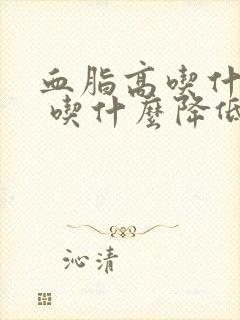 血脂高喫什
喫什麼降低
沁清